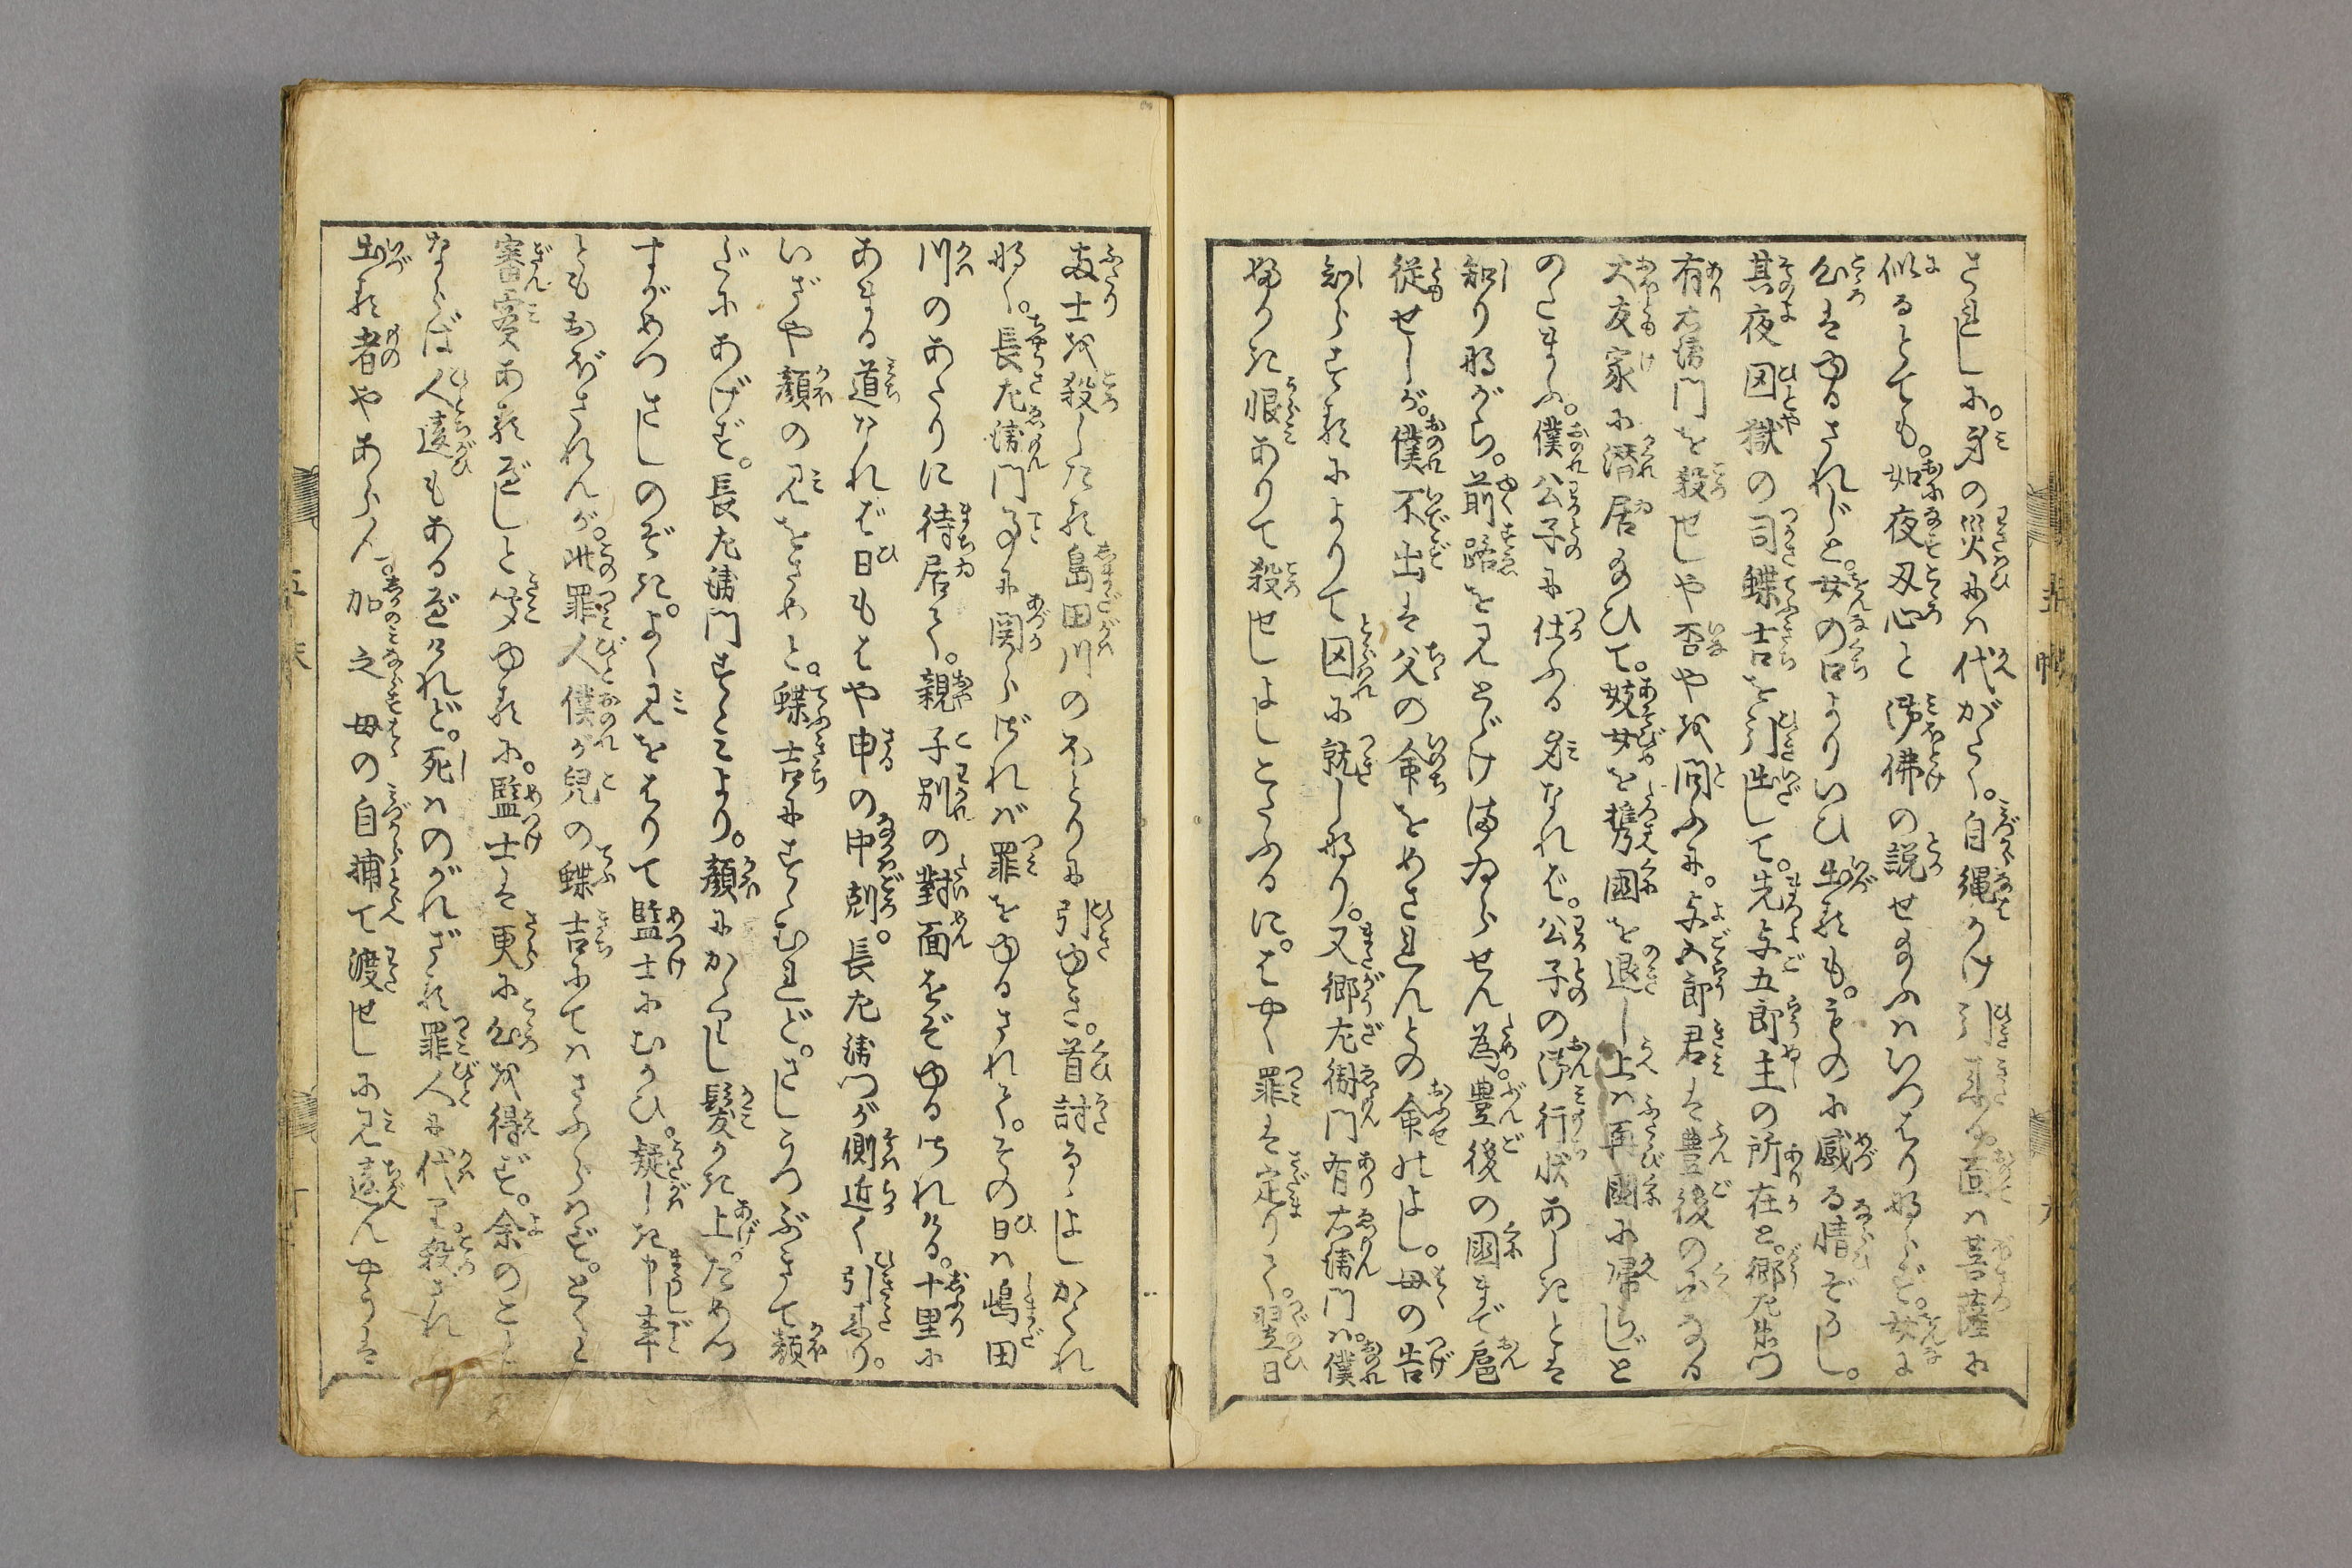 されしに。身の災には代がたく。自縄かけ引来ぬ。面は菩薩に
似るとても。如夜叉心と御佛の説せ給ふはいつはりならず。女に
心はゆるされじと。女の口よりいひ出るも。ものに感る情ぞかし。
其夜囚獄の司蝶吉を引出して。先与五郎主の所在と。郷左衛門
有右衛門を殺せしや否やを問ふに。与五郎君は豊後の国なる
大友家に潜居給ひて。妓女を携国を退し上は再国に帰らじと
のたまふ。僕公子に仕ふる身なれば。公子の御行状あしきとは
知りながら。前路を見とゞけまゐらせん為。豊後の国まで扈
従せしが。僕不出は父の命をめされんとの命のよし。母の告
知らするによりて囚に就しなり。又郷左衛門有右衛門は。僕
ふかき恨ありて殺せしよしこたふるに。はやく罪は定りて。翌日
両士を殺したる島田川のほとりに引ゆき。首討るゝよしかくれ
なく。長左衛門事に関らざれば罪をゆるされて。その日は嶋田
川のあたりに待居て。親子別の對面をぞゆるされける。十里に
あまる道なれば日もはや申の中剋。長左衛門が側近く引来り。
いざや顔の見をさめと。蝶吉にすゝむれど。さしうつぶきて顔
だにあげず。長左衛門すゝみより。顔にかゝりし髪かき上。ためつ
すがめつさしのぞき。よく見をはりて監士にむかひ。疑しき申事
ともおぼされんが。此罪人僕が兒の蝶吉にてはさふらはず。とくと
審実あるべしと聞ゆるに。監士は更に心を得ず。余のこと
ならば人違もあるべけれど。死はのがれざる罪人に代りて殺され
出る者やあらん。加之母の自捕て渡せしに見違んやうは